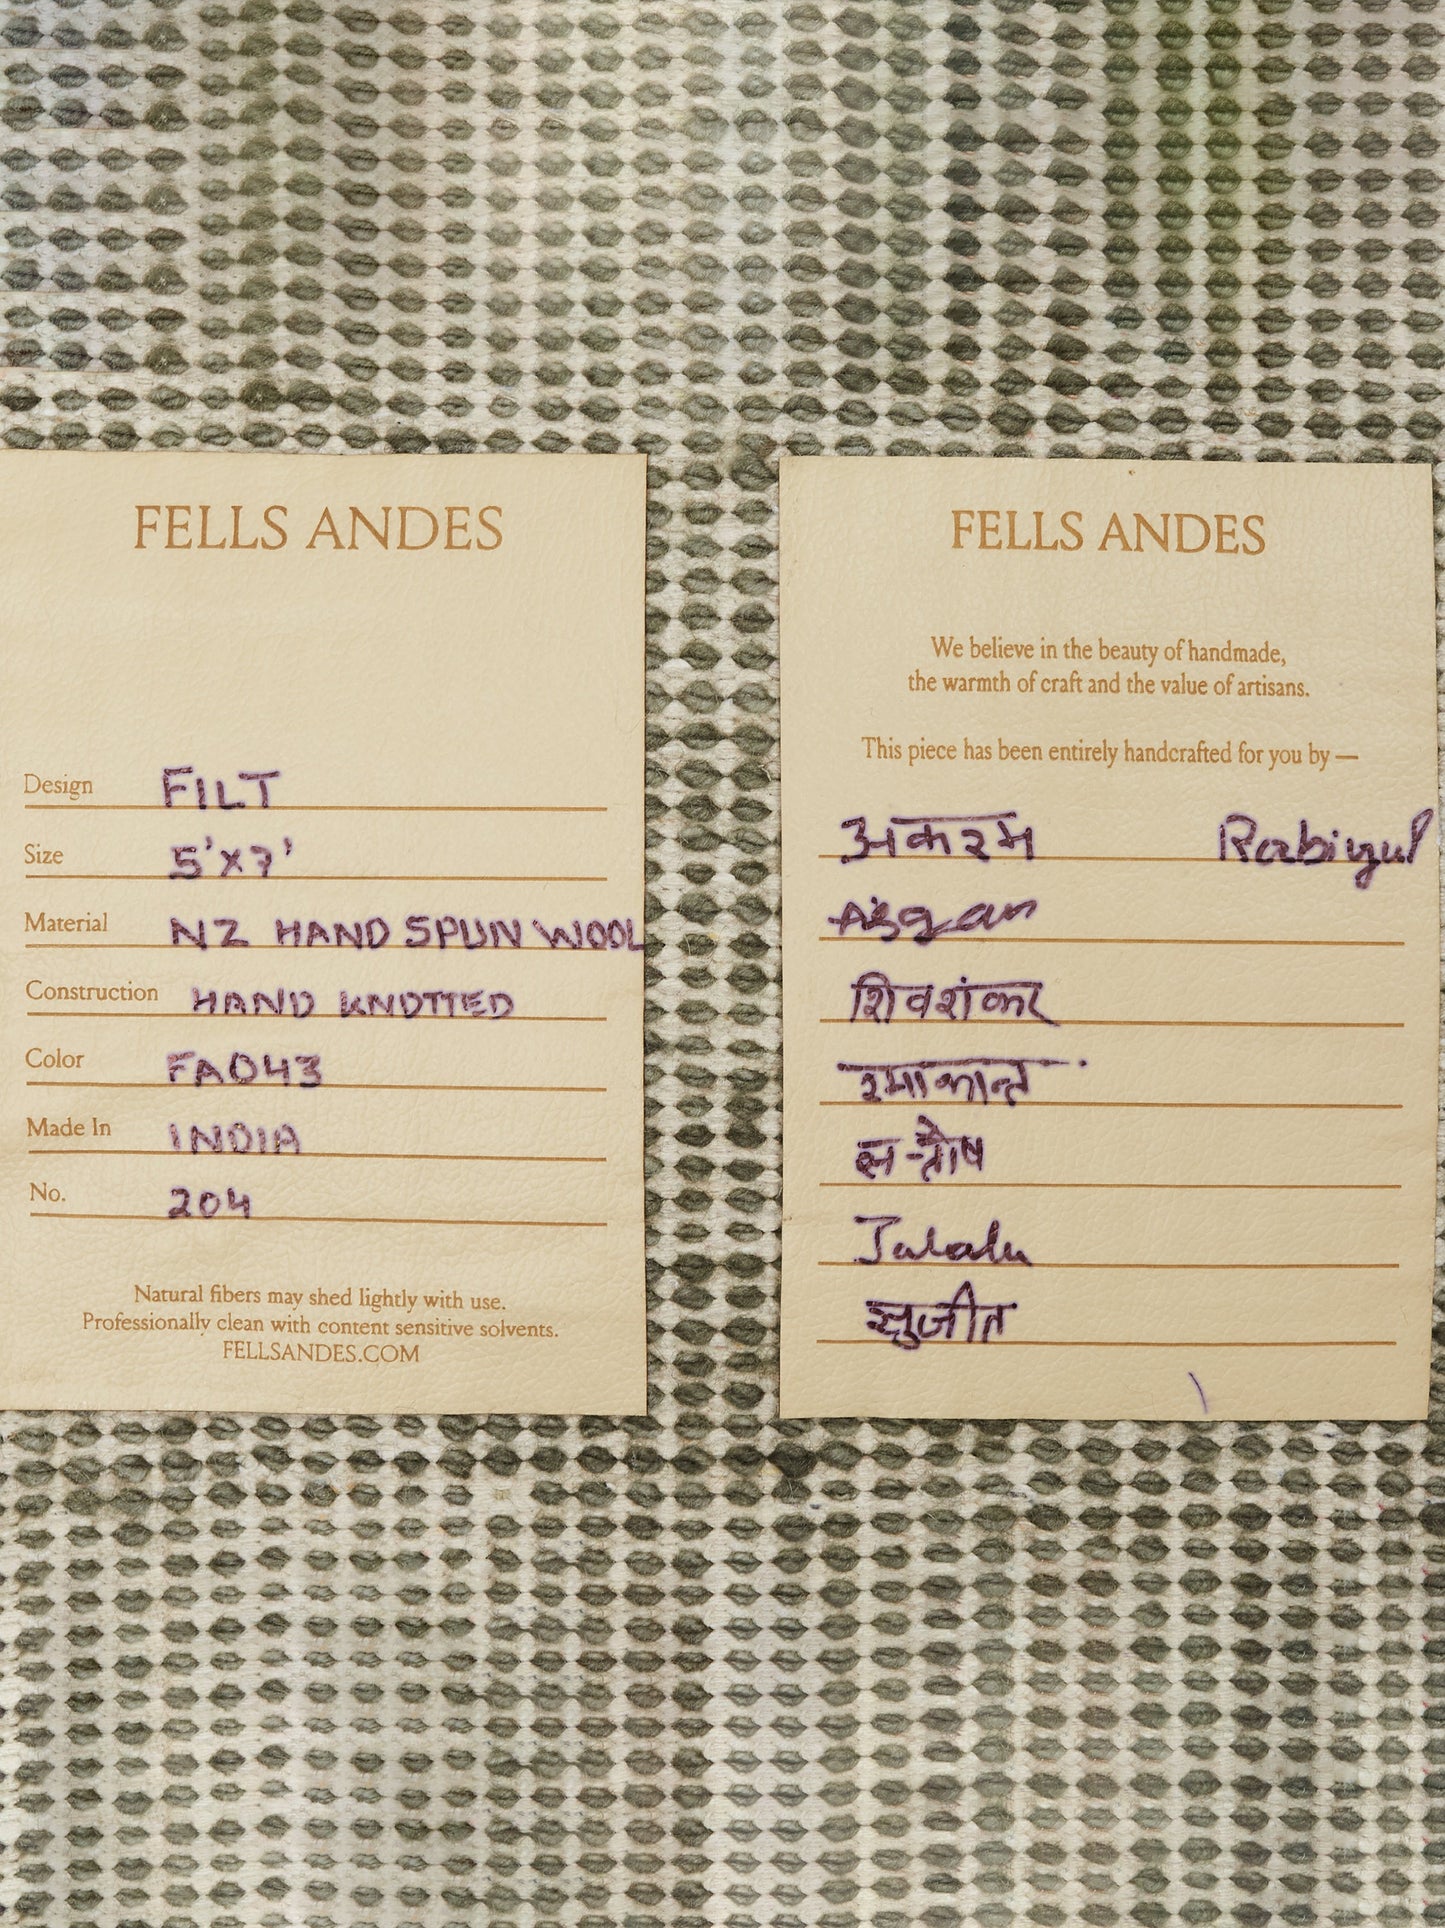 FELLS ANDES
Design FILT
Size 5'x7'
Material NZ HAND SPUN WOOL
Construction HAND KNOTTED
Color FA043
Made In INDIA
No. 204
Natural fibers may shed lightly with use.
Professionally clean with content sensitive solvents.
FELLSANDES.COM
FELLS ANDES
We believe in the beauty of handmade,
the warmth of craft and the value of artisans.
This piece has been entirely handcrafted for you by —
अकरम Rabiyul
शिवशंकर
रमाकान्त
सन्तोष
सुजीत